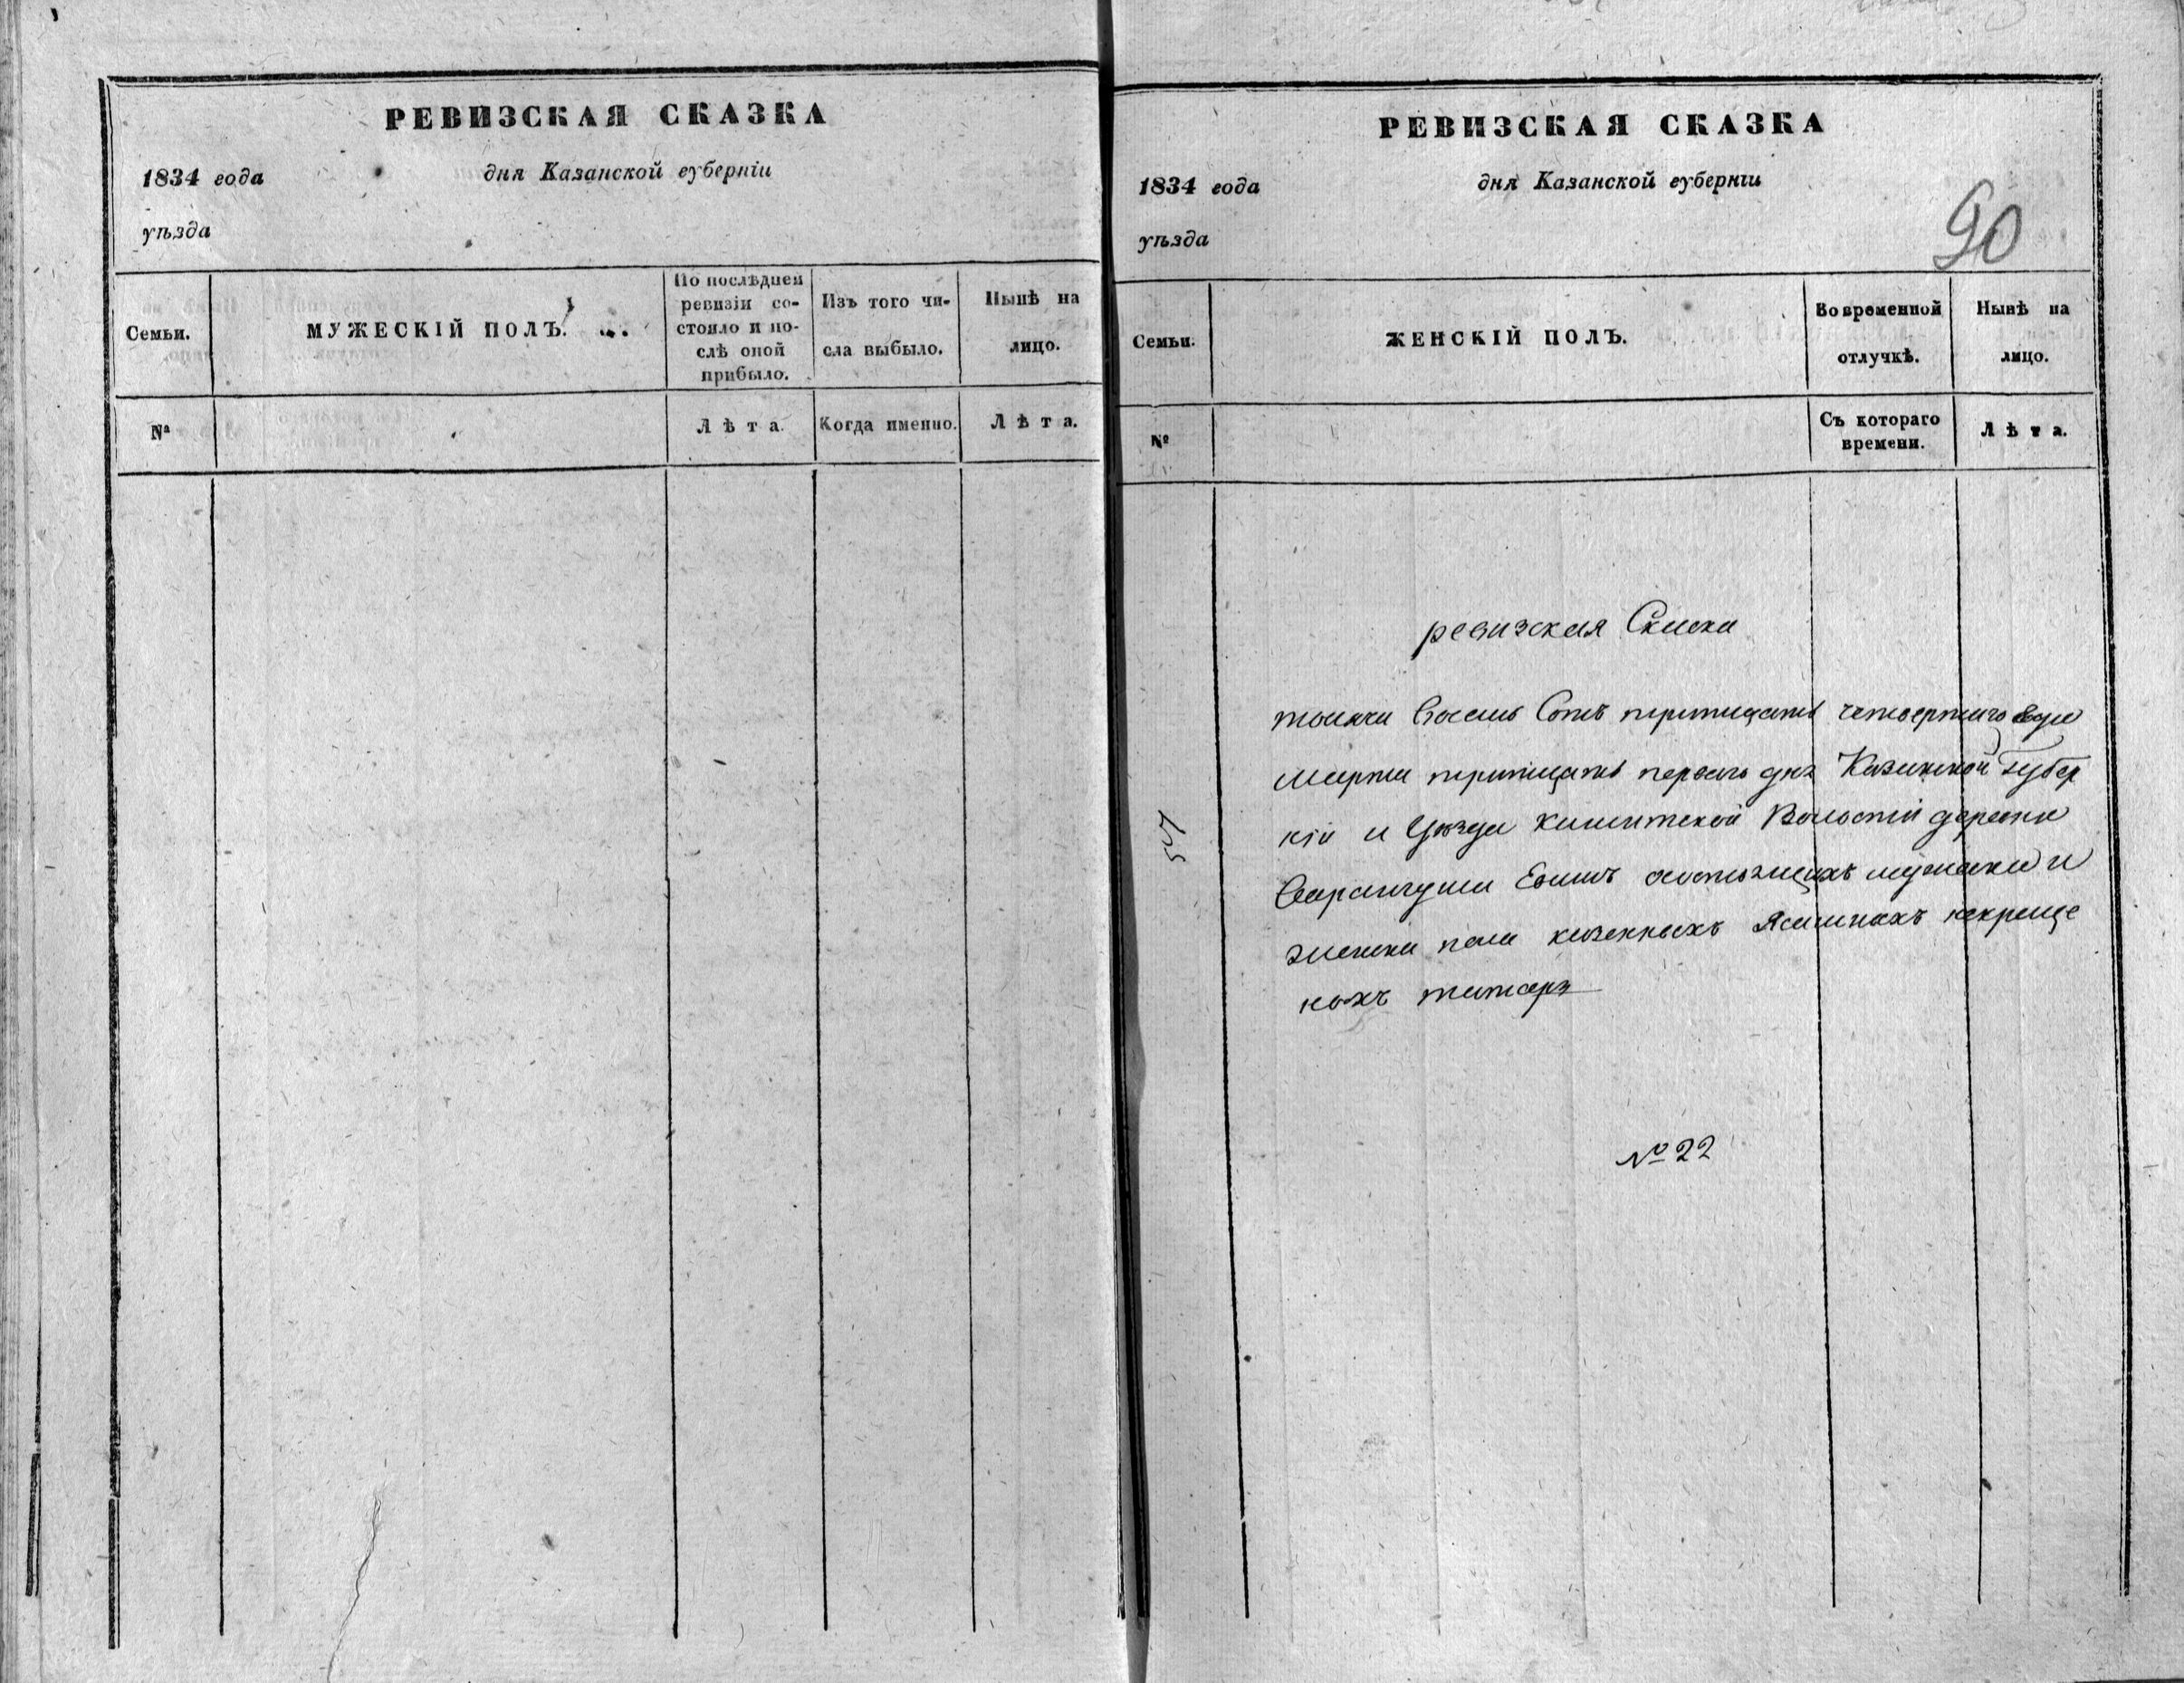 РЕВИЗСКАЯ СКАЗКА
1834 года дня Казанской губернiи
уѣзда
Семьи.
МУЖЕСКIЙ ПОЛЪ.
По послѣдней
ревизiи со-
стояло и по-
слѣ оной
прибыло.
Изъ того чи-
сла выбыло.
Нынѣ на
лицо.
№
Лѣта.
Когда именно.
Лѣта.
РЕВИЗСКАЯ СКАЗКА
1834 года дня Казанской губернiи
уѣзда
90
Семьи.
ЖЕНСКIЙ ПОЛЪ.
Во временной
отлучкѣ.
Нынѣ на
лицо.
№
Съ котораго
времени.
Лѣта.
ревизская Скаска
Восемь Сотъ тритцать четвертаго года
Марта тритцать перваго дня Казанской Губер
нiи и Уѣзда Волости деревни
состоящихъ мужска и
женска пола казенныхъ Ясашныхъ некреще
ныхъ татаръ
№ 22